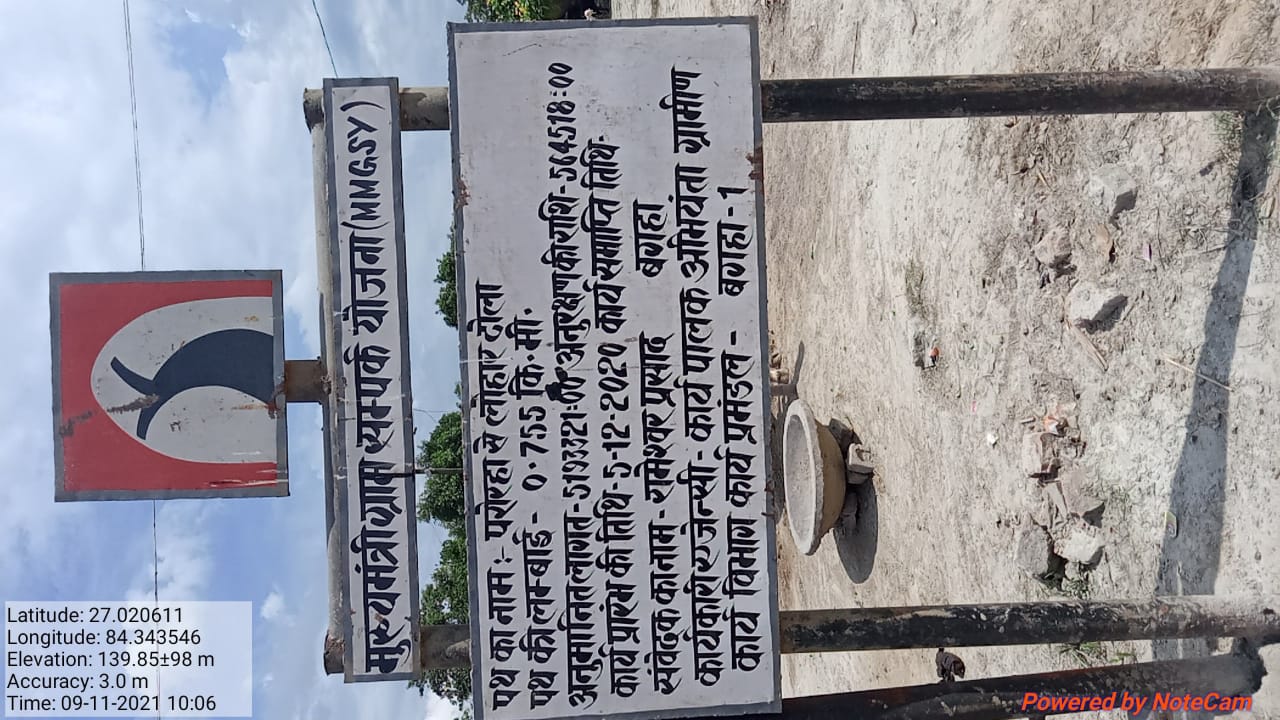 मुख्यमंत्री ग्राम सम्पर्क योजना (MMGSY)
पथ का नाम :- परोरहा से लोहार टोला
पथ की लम्बाई - 0.755 कि.मी.
अनुमानित लागत - 5193321.00 अनुरक्षण की राशि - 564518:00
कार्य प्रारंभ की तिथि - 5-12-2020 कार्य समाप्ति तिथि-
संवेदक का नाम - रामेश्वर प्रसाद बगहा
कार्यकारी एजेन्सी - कार्यपालक अभियंता ग्रामीण
कार्य विभाग कार्य प्रमंडल - बगहा - 1
Latitude: 27.020611
Longitude: 84.343546
Elevation: 139.85±98 m
Accuracy: 3.0 m
Time: 09-11-2021 10:06
Powered by NoteCam